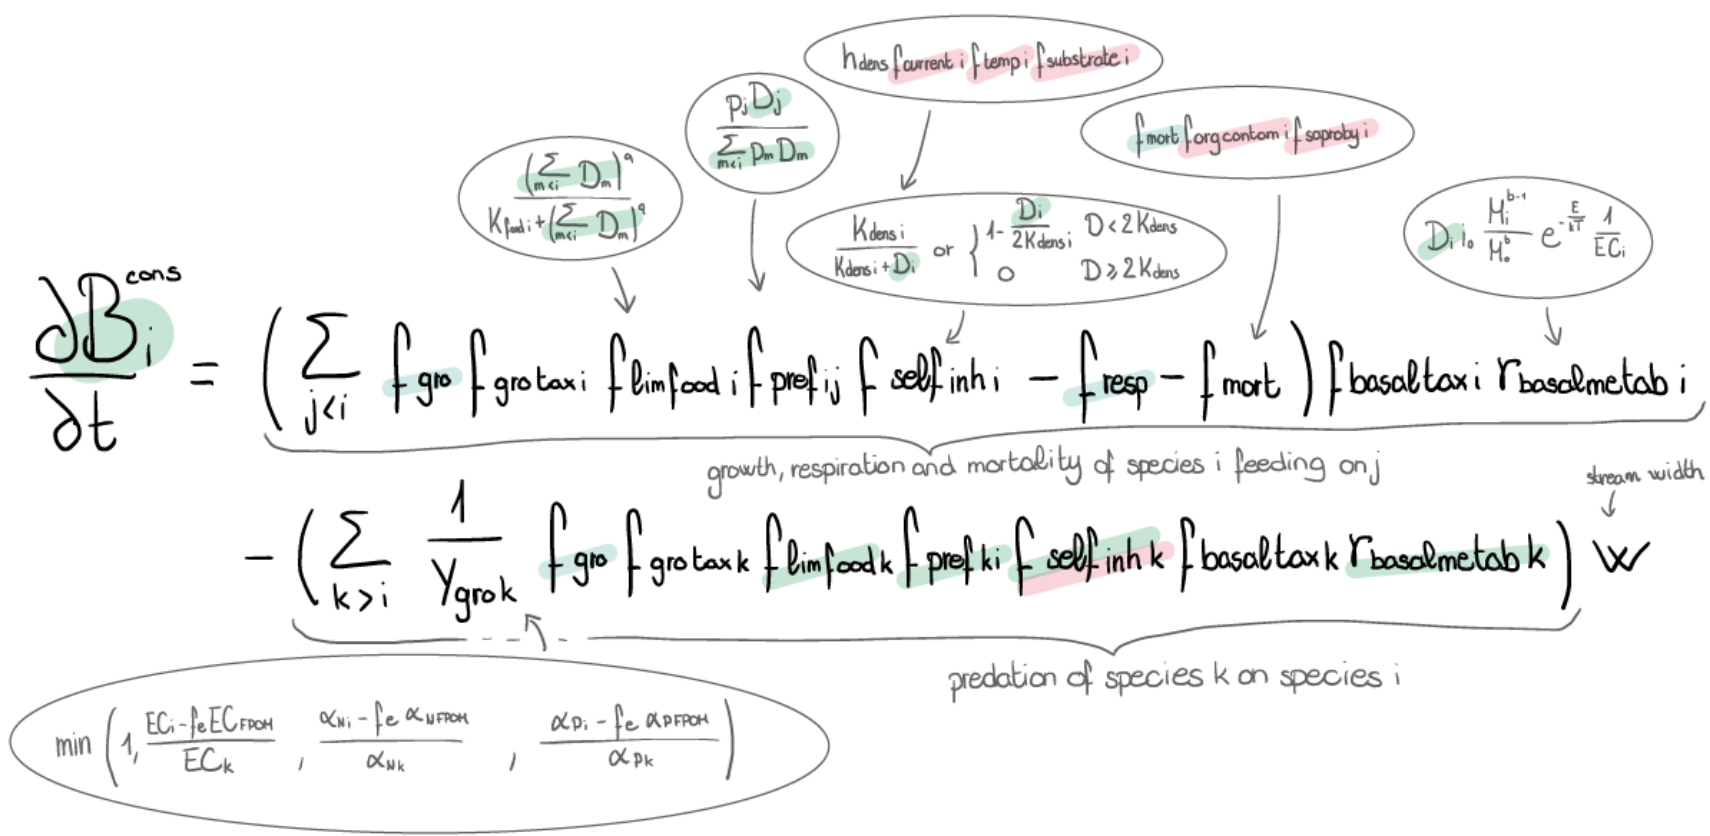 h_dens f_current i f_temp i f_substrate i
p_j D_j / Σ_{m<i} p_m D_m
f_mort f_orgcontam i f_saproby i
(Σ_{m<i} D_m)^q / K_food i + (Σ_{m<i} D_m)^q
K_dens i / K_dens i + D_i or { 1 - D_i / 2K_dens i D < 2K_dens
0 D ≥ 2K_dens
D_i i_0 M_i^{b-1} / M_0^b e^{-E/kT} 1 / EC_i
∂B_i^cons / ∂t = ( Σ_{j<i} f_gro f_grotax i f_limfood i f_pref ij f_selfinh i - f_resp - f_mort ) f_basaltax i r_basalmetab i
growth, respiration and mortality of species i feeding on j
stream width
- ( Σ_{k>i} 1 / Y_gro k f_gro f_grotax k f_limfood k f_pref ki f_selfinh k f_basaltax k r_basalmetab k ) w
predation of species k on species i
min ( 1, EC_i - f_e EC_FPOM / EC_k , α_Ni - f_e α_NFPOM / α_Nk , α_Pi - f_e α_PFPOM / α_Pk )